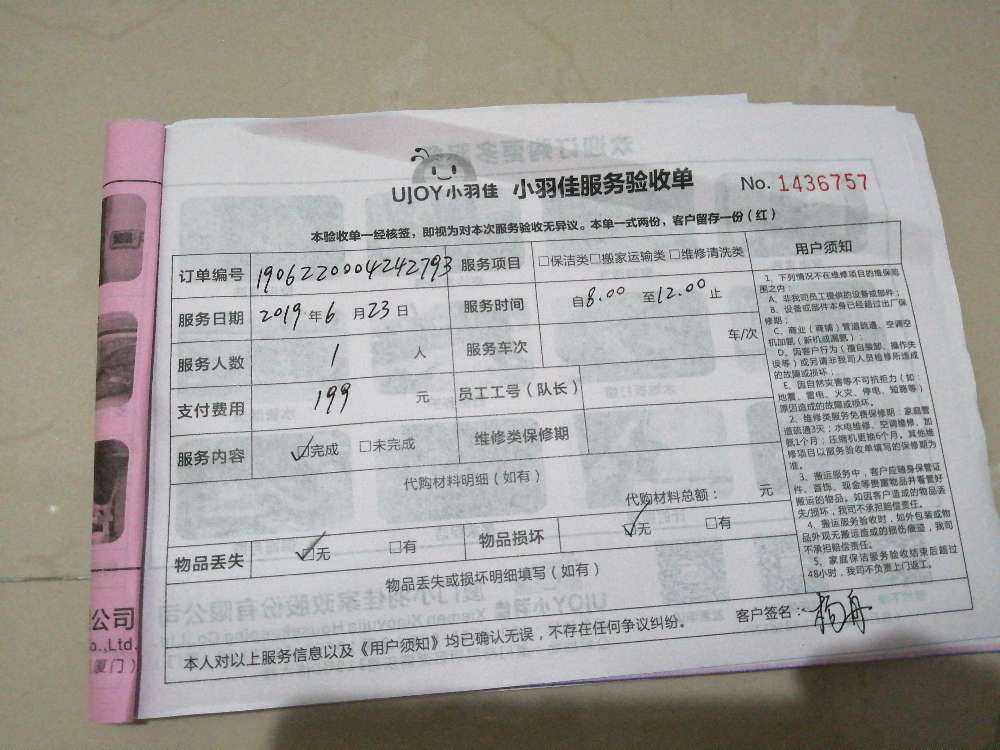 UJOY小羽佳 小羽佳服务验收单 No. 1436757
本验收单一经核签，即视为对本次服务验收无异议。本单一式两份，客户留存一份（红）
订单编号 1906220004242793 服务项目 □保洁类□搬家运输类□维修清洗类 用户须知
服务日期 2019年6月23日 服务时间 自8.00至12.00止
服务人数 1 人 服务车次 车/次
支付费用 199 元 员工工号（队长）
服务内容 ☑完成 □未完成 维修类保修期
代购材料明细（如有）
代购材料总额： 元
物品丢失 ☑无 □有 物品损坏 ☑无 □有
物品丢失或损坏明细填写（如有）
本人对以上服务信息以及《用户须知》均已确认无误，不存在任何争议纠纷。 客户签名：杨舟
1、下列情况不在维修项目的维保范
围之内：
A、非我司员工提供的设备或部件；
B、设备或部件本身已经超过出厂保
修期；
C、商业（商铺）管道疏通、空调空
机加氨（新机或漏氨）；
D、因客户行为（擅自装卸、操作失
误等）或另请非我司人员检修所造成
的故障或损坏；
E、因自然灾害等不可抗拒力（如：
地震、雷电、火灾、停电、短路等）
原因造成的故障或损坏。
2、维修类服务免费保修期：家庭管
道疏通3天；水电维修、空调维修、加
氨1个月；压缩机更换6个月。其他维
修项目以服务验收单填写的保修期为
准。
3、搬运服务中，客户应随身保管证
件、首饰、现金等贵重物品并看管好
搬运的物品。如因客户造成的物品丢
失/损坏，我司不承担赔偿责任。
4、搬运服务验收时，如外包装或物
品外观无搬运造成的损伤痕迹，我司
不承担赔偿责任。
5、家庭保洁服务验收结束后超过
48小时，我司不负责上门返工。
公司
o.,Ltd.
厦门）